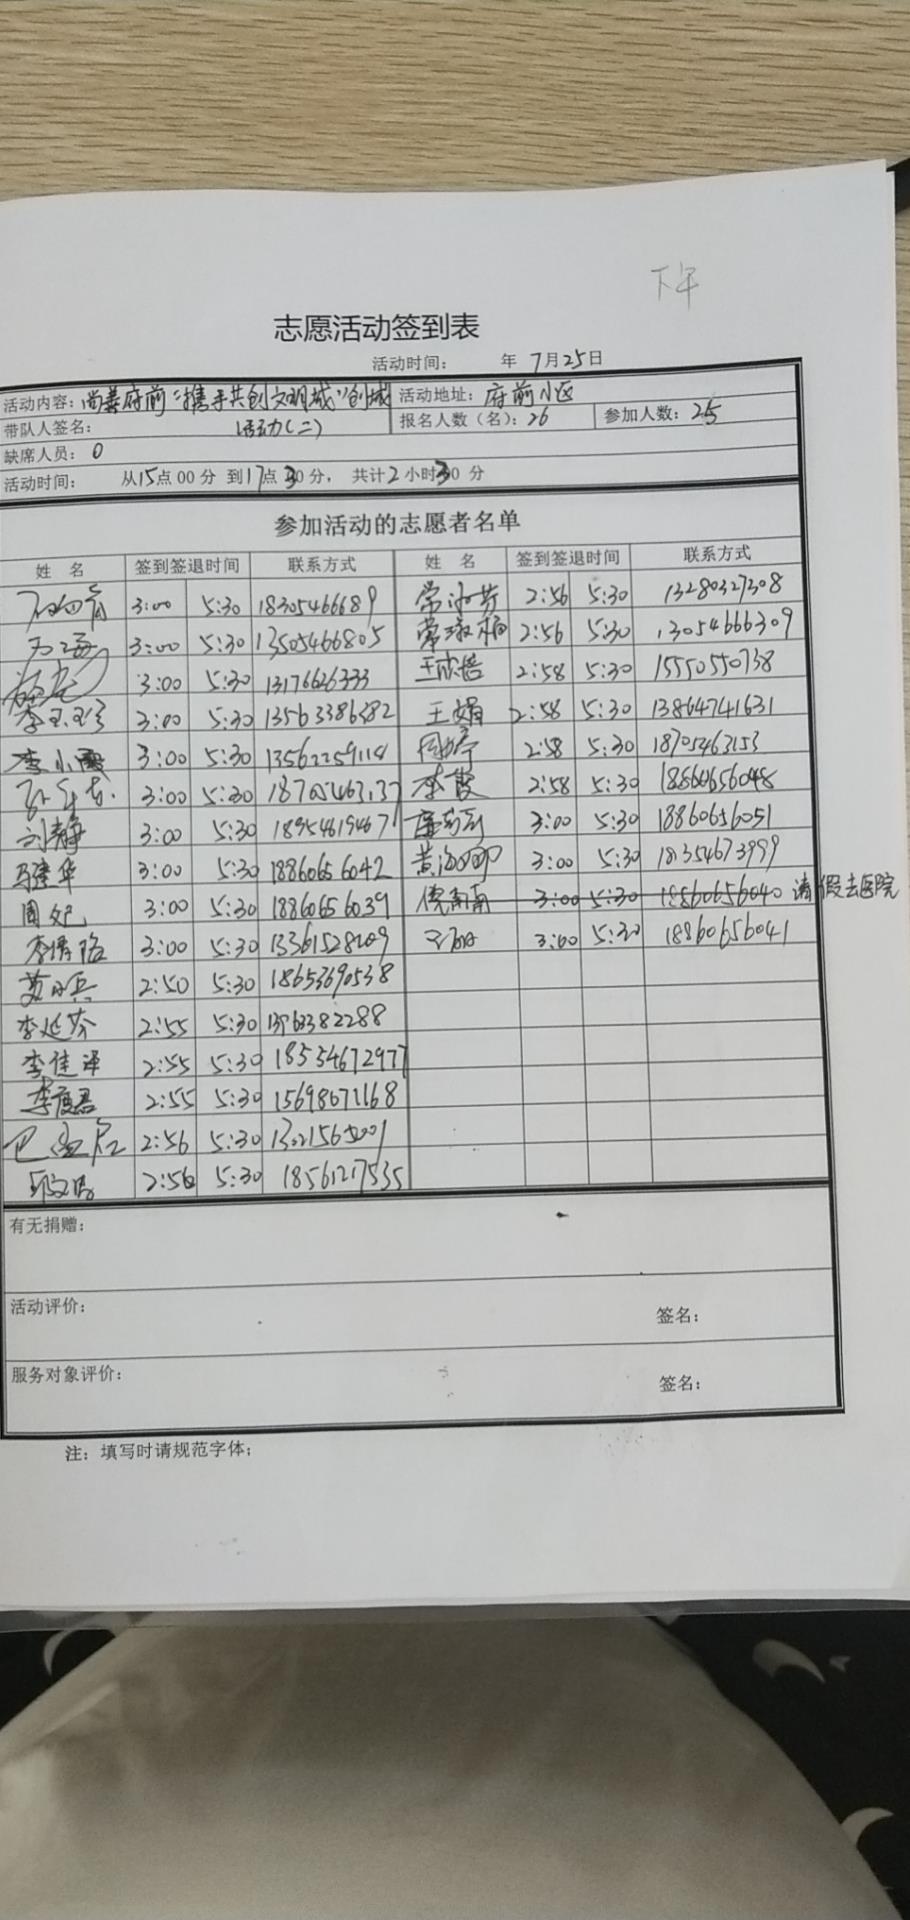 下午
志愿活动签到表
活动时间： 年 7月25日
活动内容：尚善府前“携手共创文明城”创城 活动地址：府前小区
带队人签名： 活动(二) 报名人数（名）：26 参加人数：25
缺席人员：0
活动时间： 从15点00分 到17点30分， 共计2小时30分
参加活动的志愿者名单
姓 名 签到签退时间 联系方式 姓 名 签到签退时间 联系方式
3:00 5:30 18305466689 常淑芬 2:56 5:30 13280327308
3:00 5:30 13505466805 2:56 5:30 13054666309
3:00 5:30 13176626333 2:58 5:30 15550550738
李玉珍 3:00 5:30 13563386382 王娟 2:58 5:30 13864741631
李小霞 3:00 5:30 13562259114 周婷 2:58 5:30 18705463153
3:00 5:30 李霞 2:58 5:30 18860656048
刘静 3:00 5:30 18954619467 3:00 5:30 18860656051
马建华 3:00 5:30 18860656042 3:00 5:30 18354673999
周妃 3:00 5:30 18860656039 倪南南 3:00 5:30 18860656040 请假去医院
李倩 3:00 5:30 13361528209 3:00 5:30 18860656041
2:50 5:30 18653690538
李延芬 2:55 5:30 13963382288
李佳泽 2:55 5:30 18554672977
2:55 5:30 15698671168
2:56 5:30 13021565001
2:56 5:30 18561217535
有无捐赠：
活动评价：
签名：
服务对象评价：
签名：
注：填写时请规范字体；